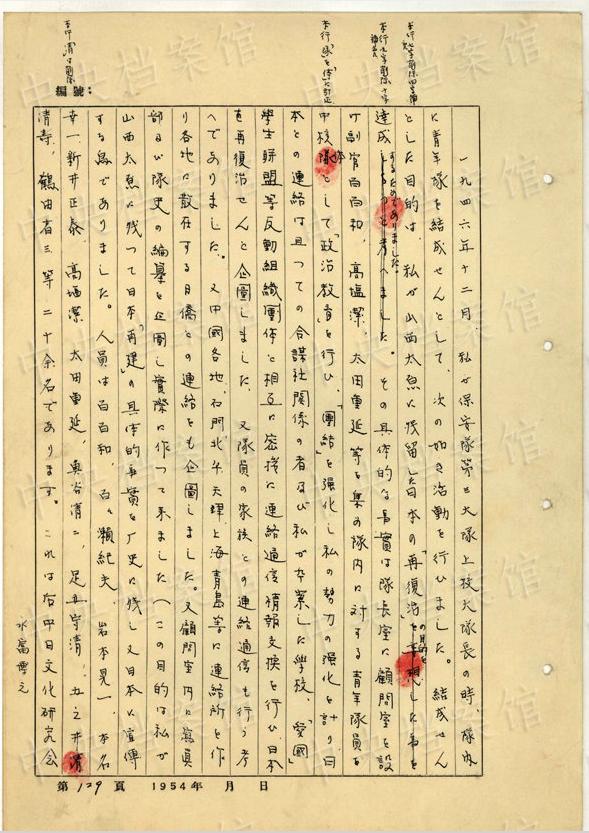 一九四六年十二月、私が保安隊第三大隊上校大隊長の時、隊内
に青年隊を結成せんとして、次の如き活動を行ひました。結成せん
とした目的は、私が山西太原に残留した日本の「再復治」の目的を
達成するためでありました。その具体的な事実は隊長室に顧問室を設
け副官百百和、高塩潔、太田重延等を集め隊内に対する青年隊員を
中核体として「政治教育」を行ひ、「團結」を強化し私の勢力の強化を計り日
本との連絡は且つての合謀社関係の者及び私が卒業した学校、「愛國」
學生聯盟等反動組織團体と相互に密接に連絡通信情報交換を行ひ日本
を再復治せんと企圖しました。又隊員の家族との連絡通信も行う考
へでありました。又中國各地、石門、北平、天津、上海、青島等に連絡所を作
り各地に散在する日僑との連絡をも企圖しました。又顧問室内に寫真
部及び隊史の編纂を企圖し實際に作って来ました（この目的は私が
山西太原に残って日本「再建」の具体的事實を歴史に残し又日本に宣傳
する為でありました。人員は百百和、百々瀬紀夫、岩本晃一、本名
幸一、新井正泰、高塩潔、太田重延、奥谷清二、足立守清、五之井清
清寿、鶴田省三、等二十余名であります。これは后中日文化研究会
永富博之
編號：
第129頁 1954年 月 日
中央档案馆